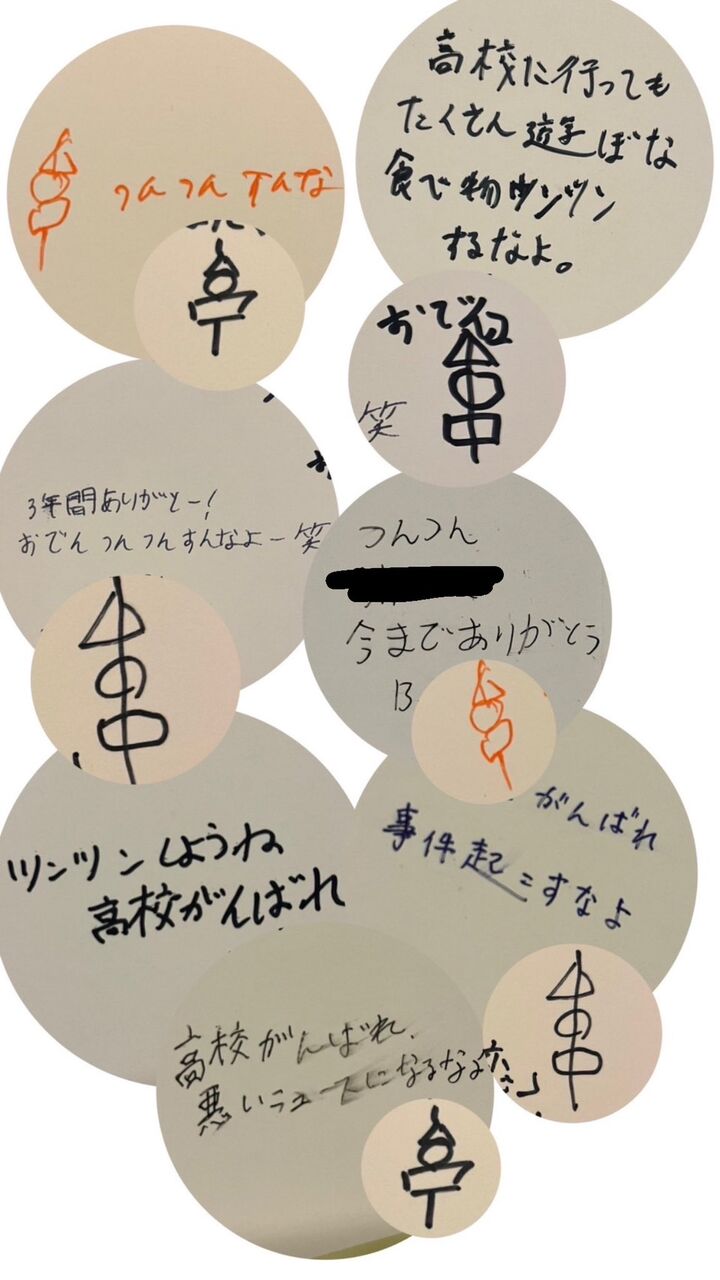 つんつんすんな
高校た行っても
たくさん遊ぼな
食で物ツンツン
するなよ。
おでん
笑
3年間ありがとー!
おでんつんつんすんなよー笑
つんつん
今までありがとう
B
ツンツンしようね
高校がんばれ
がんばれ
事件起こすなよ
高校がんばれ
悪いニュースになるなよ